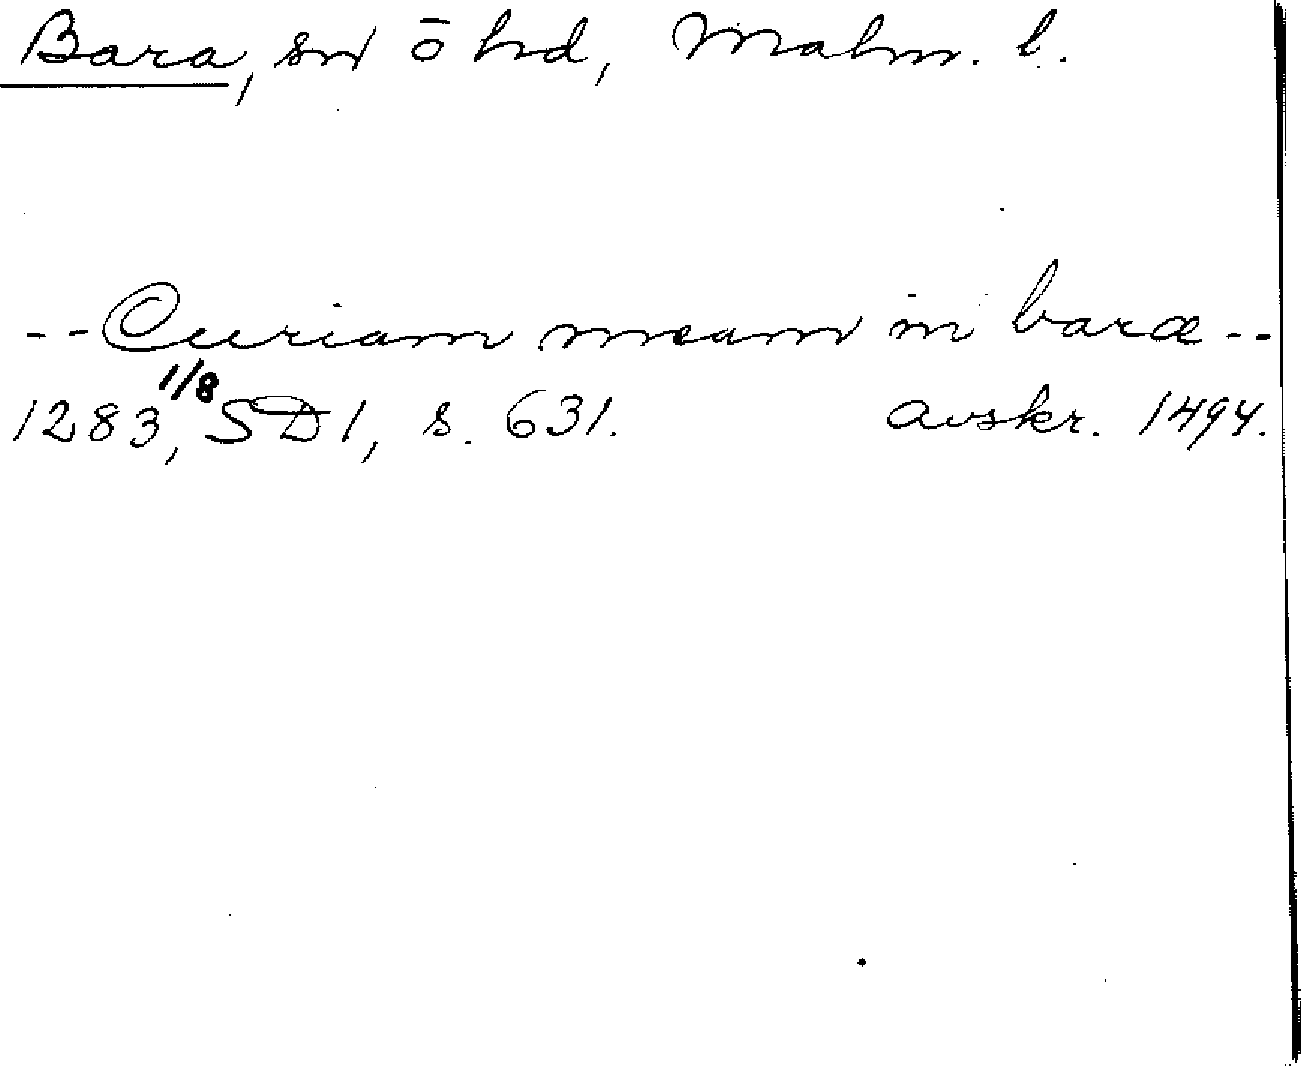 Bara, sn o hd, Malm. l.
-- Curiam meam in baræ --
1283, 1/8 SD 1, s. 631. avskr. 1494.